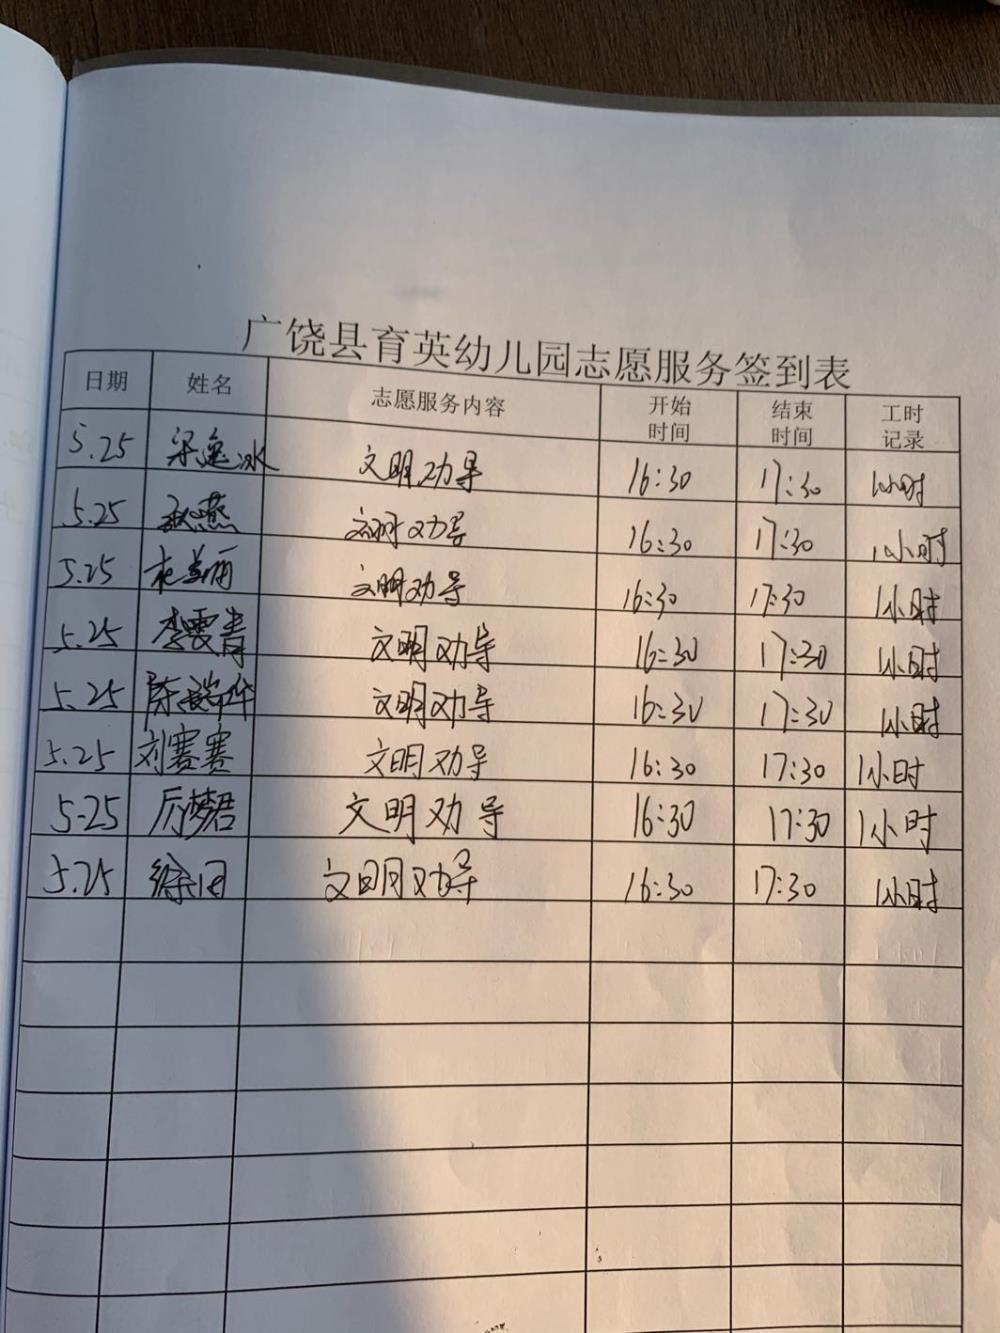 广饶县育英幼儿园志愿服务签到表
日期 姓名 志愿服务内容 开始时间 结束时间 工时记录
5.25 梁逸冰 文明劝导 16:30 17:30 1小时
5.25 燕 文明劝导 16:30 17:30 1小时
5.25 文明劝导 16:30 17:30 1小时
5.25 李雯青 文明劝导 16:30 17:30 1小时
5.25 陈瑞华 文明劝导 16:30 17:30 1小时
5.25 刘赛赛 文明劝导 16:30 17:30 1小时
5.25 厉梦君 文明劝导 16:30 17:30 1小时
5.25 徐 文明劝导 16:30 17:30 1小时